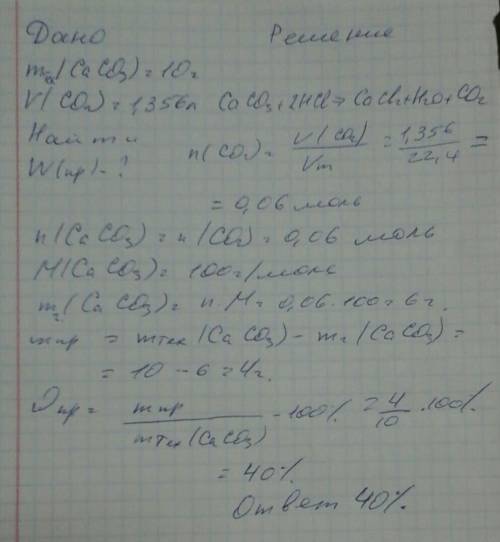 Дано Решение
m(CaCO3) = 10г
V(CO2) = 1,356л CaCO3 + 2HCl → CaCl2 + H2O + CO2
Найти
W(пр) - ? n(CO2) = V(CO2)/Vm = 1,356/22,4 =
= 0,06 моль
n(CaCO3) = n(CO2) = 0,06 моль
M(CaCO3) = 100г/моль
mч(CaCO3) = n·M = 0,06·100 = 6г.
mпр = mтех(CaCO3) - mч(CaCO3) =
= 10 - 6 = 4г.
ωпр = mпр/mтех(CaCO3) · 100% = 4/10 · 100%
= 40%.
Ответ 40%.